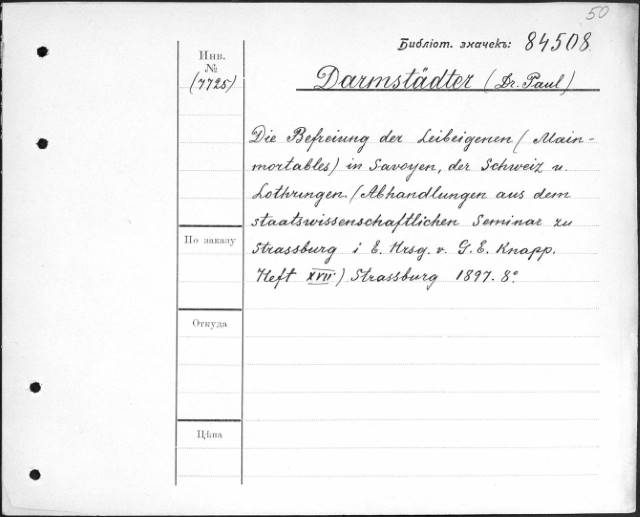 50
Библіот. значекъ: 84508.
Инв.
№
(7725)
Darmstädter (Dr. Paul)
Die Befreiung der Leibeigenen (Main-
mortables) in Savoyen, der Schweiz u.
Lothringen. (Abhandlungen aus dem
staatswissenschaftlichen Seminar zu
Strassburg i E. Hrsg. v. G. E. Knapp.
Heft XVII) Strassburg 1897. 8°
По заказу
Откуда
Цѣна